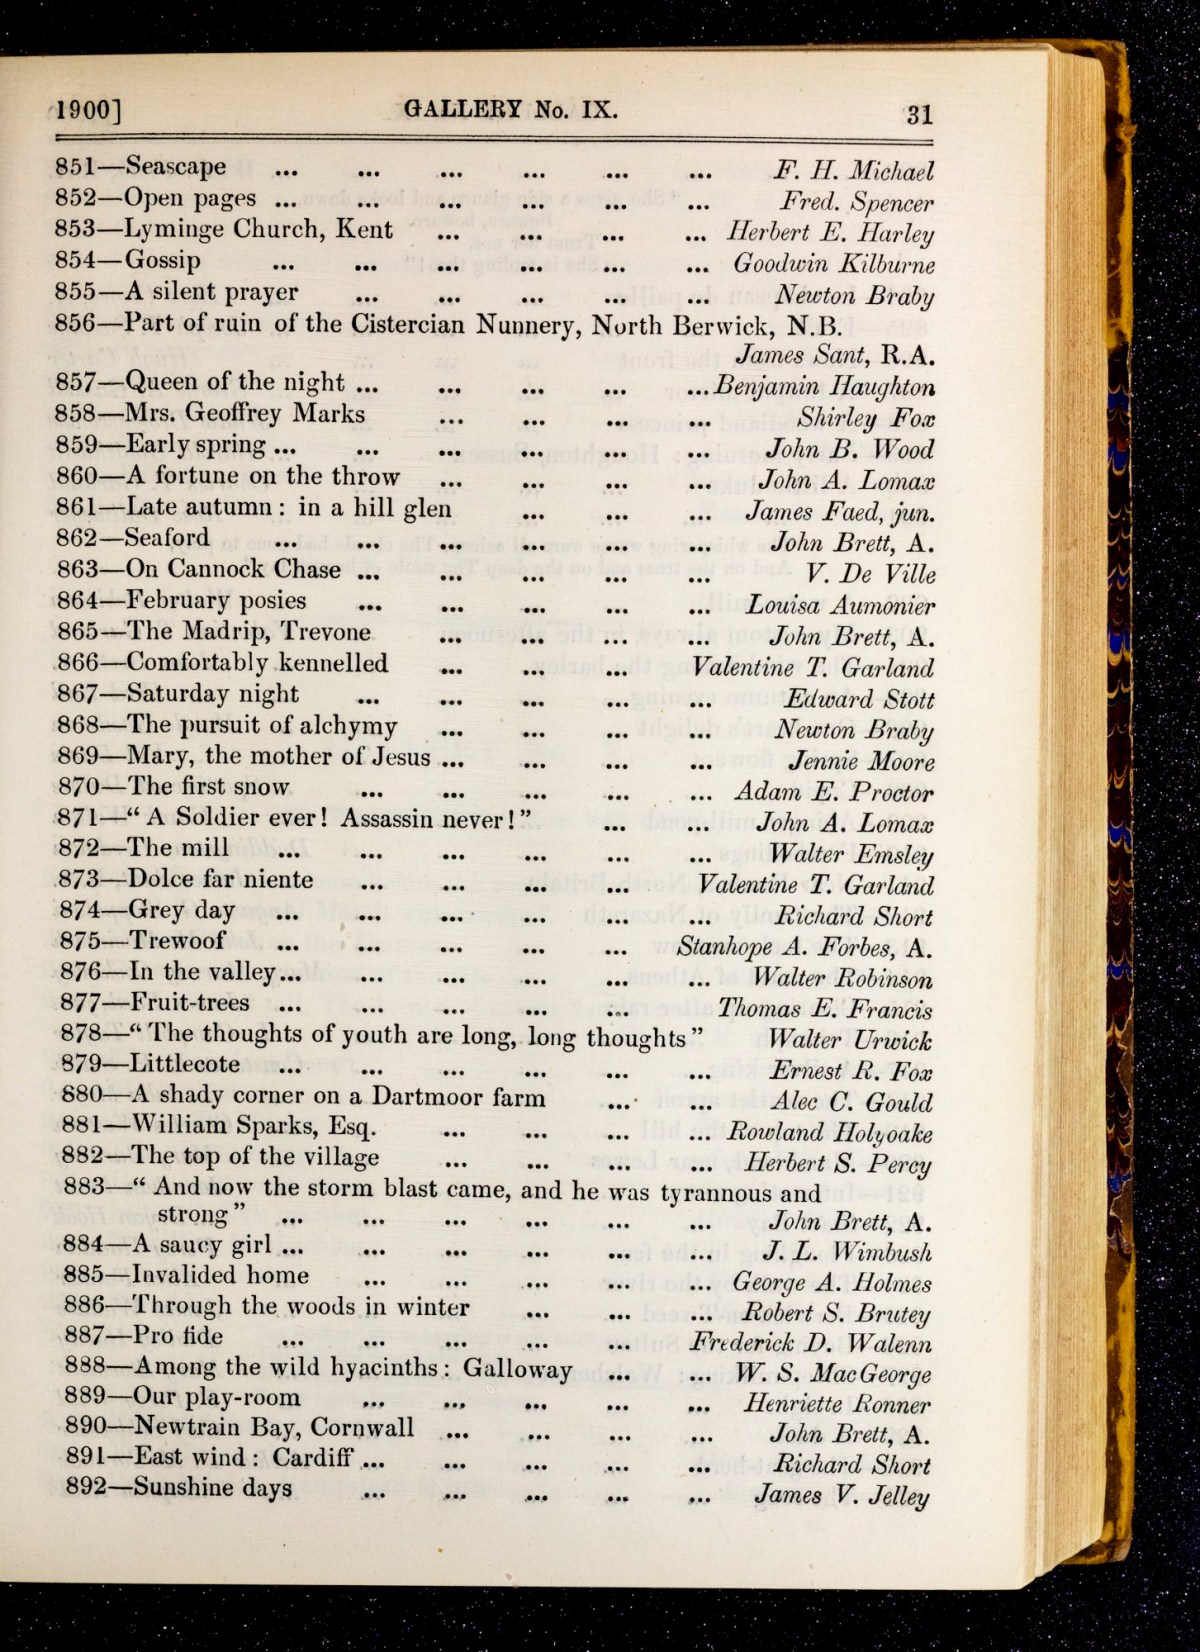 1900] GALLERY No. IX. 31
851—Seascape ... ... ... ... ... ... F. H. Michael
852—Open pages ... ... ... ... ... ... Fred. Spencer
853—Lyminge Church, Kent ... ... ... ... Herbert E. Harley
854—Gossip ... ... ... ... ... ... Goodwin Kilburne
855—A silent prayer ... ... ... ... ... Newton Braby
856—Part of ruin of the Cistercian Nunnery, North Berwick, N.B.
James Sant, R.A.
857—Queen of the night ... ... ... ... ... Benjamin Haughton
858—Mrs. Geoffrey Marks ... ... ... ... Shirley Fox
859—Early spring ... ... ... ... ... ... John B. Wood
860—A fortune on the throw ... ... ... ... John A. Lomax
861—Late autumn : in a hill glen ... ... ... James Faed, jun.
862—Seaford ... ... ... ... ... ... John Brett, A.
863—On Cannock Chase ... ... ... ... ... V. De Ville
864—February posies ... ... ... ... ... Louisa Aumonier
865—The Madrip, Trevone ... ... ... ... John Brett, A.
866—Comfortably kennelled ... ... ... Valentine T. Garland
867—Saturday night ... ... ... ... ... Edward Stott
868—The pursuit of alchymy ... ... ... ... Newton Braby
869—Mary, the mother of Jesus ... ... ... ... Jennie Moore
870—The first snow ... ... ... ... ... Adam E. Proctor
871—“ A Soldier ever! Assassin never! ” ... ... John A. Lomax
872—The mill ... ... ... ... ... ... Walter Emsley
873—Dolce far niente ... ... ... ... Valentine T. Garland
874—Grey day ... ... ... ... ... ... Richard Short
875—Trewoof ... ... ... ... ... Stanhope A. Forbes, A.
876—In the valley ... ... ... ... ... ... Walter Robinson
877—Fruit-trees ... ... ... ... ... Thomas E. Francis
878—“ The thoughts of youth are long, long thoughts ” Walter Urwick
879—Littlecote ... ... ... ... ... ... Ernest R. Fox
880—A shady corner on a Dartmoor farm ... ... Alec C. Gould
881—William Sparks, Esq. ... ... ... ... Rowland Holyoake
882—The top of the village ... ... ... ... Herbert S. Percy
883—“ And now the storm blast came, and he was tyrannous and
strong ” ... ... ... ... ... ... John Brett, A.
884—A saucy girl ... ... ... ... ... ... J. L. Wimbush
885—Invalided home ... ... ... ... ... George A. Holmes
886—Through the woods in winter ... ... ... Robert S. Brutey
887—Pro fide ... ... ... ... ... Frederick D. Walenn
888—Among the wild hyacinths : Galloway ... ... W. S. MacGeorge
889—Our play-room ... ... ... ... ... Henriette Ronner
890—Newtrain Bay, Cornwall ... ... ... ... John Brett, A.
891—East wind : Cardiff ... ... ... ... ... Richard Short
892—Sunshine days ... ... ... ... ... James V. Jelley